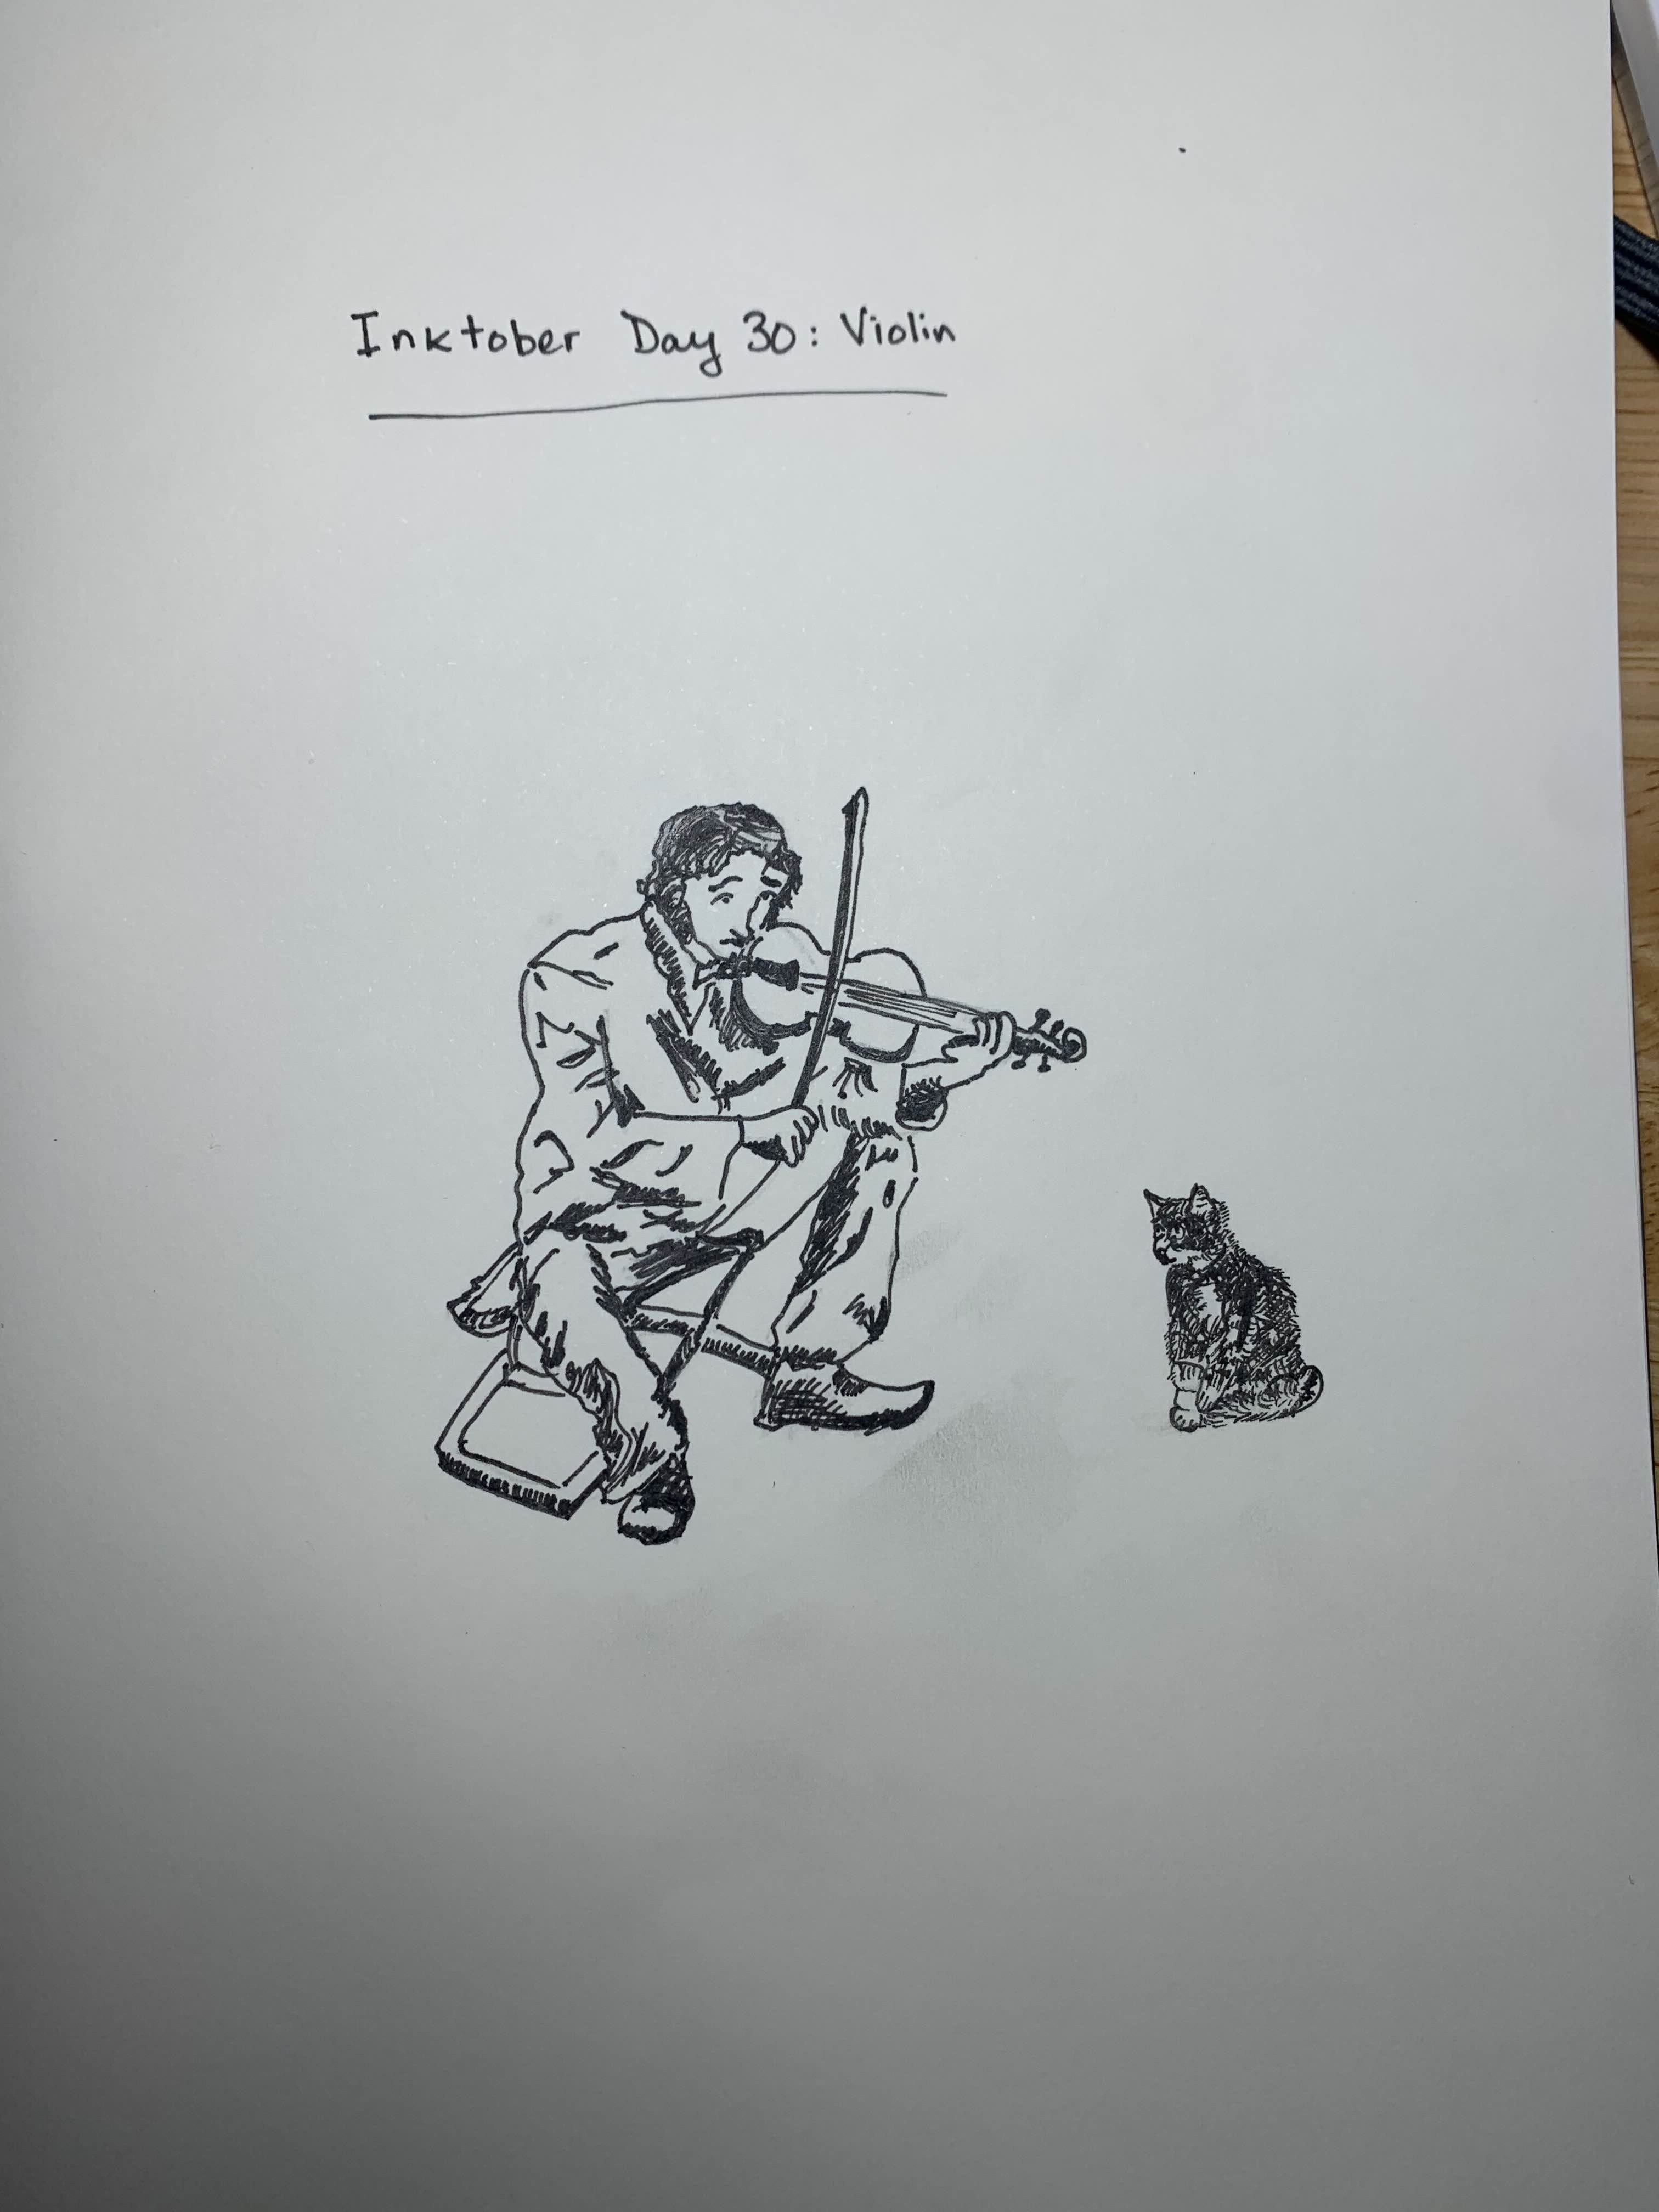 Inktober Day 30: Violin